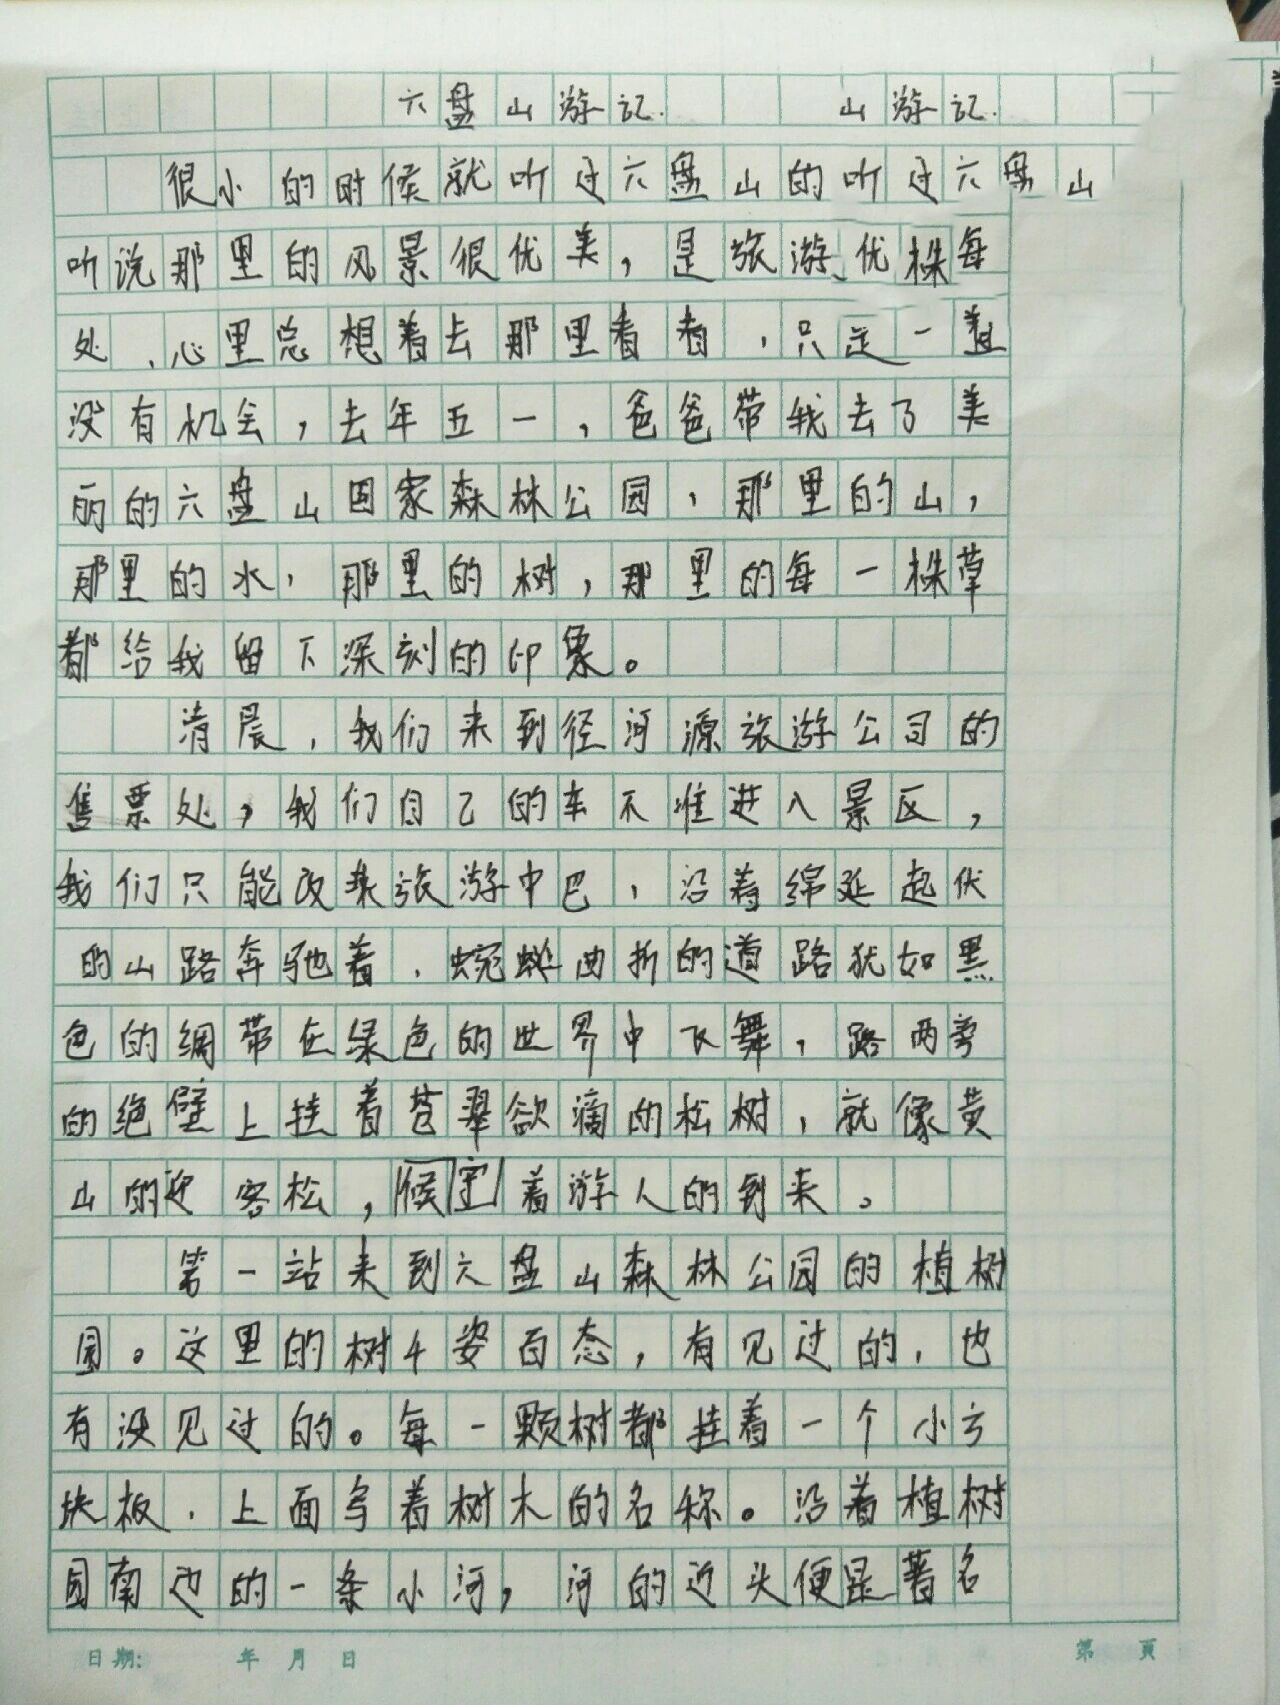 六盘山游记. 山游记.
很小的时候就听过六盘山的听过六盘山
听说那里的风景很优美，是旅游、优株每
处、心里总想着去那里看看，只是一直
没有机会，去年五一，爸爸带我去了美
丽的六盘山国家森林公园，那里的山，
那里的水，那里的树，那里的每一株草
都给我留下深刻的印象。
清晨，我们来到径河源旅游公司的
售票处，我们自己的车不准进入景区，
我们只能改乘旅游中巴，沿着绵延起伏
的山路奔驰着，蜿蜒曲折的道路犹如黑
色的绸带在绿色的世界中飞舞，路两旁
的绝壁上挂着苍翠欲滴的松树，就像黄
山的迎客松，候守着游人的到来。
第一站来到六盘山森林公园的植树
园。这里的树千姿百态，有见过的，也
有没见过的。每一颗树都挂着一个小方
块板，上面写着树木的名称。沿着植树
园南边的一条小河，河的近头便是著名
日期: 年 月 日 第 頁